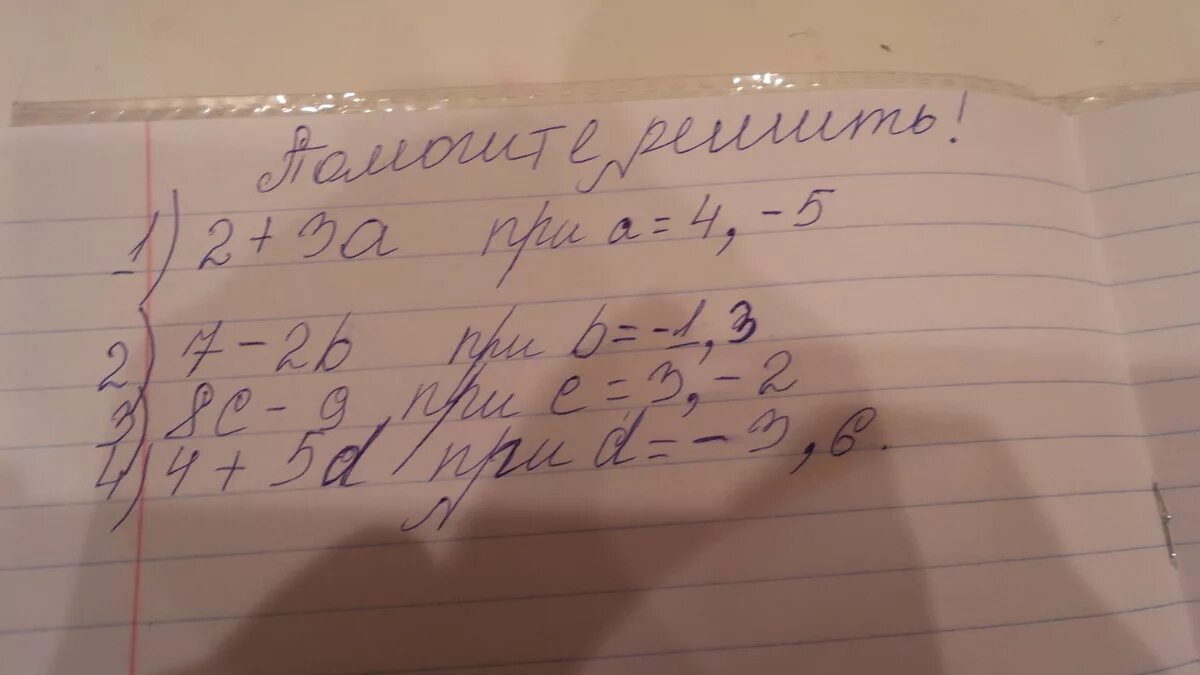 Помогите решить!
1) 2 + 3a при a = 4, -5
2) 7 - 2b при b = -1, 3
3) 8c - 9 при c = 3, -2
4) 4 + 5d при d = -3, 6.